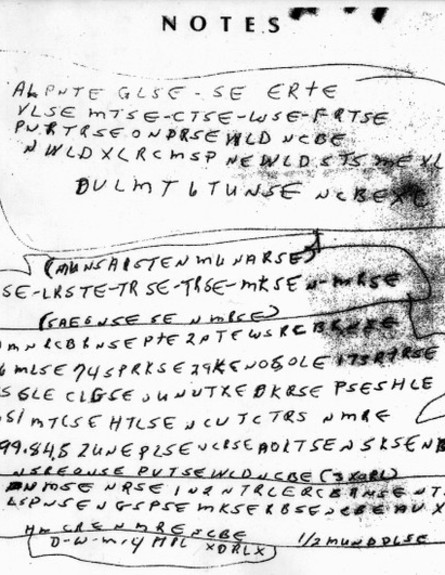 NOTES
ALPNTE GLSE-SE ERTE
VLSE MTSE-CTSE-WSE-FRTSE
PNRTRSEONDRSEWLD NCBE
NWLDXLRCMSP NEWLDSTS ME XL
DULMT6TUNSE NCBEXC
(MUNSAISTENMUNARSE)
SE-LRSTE-TRSE-TRSE-MKSEN-MRSE
(SAEGNSESE NMRSE)
MNRCBRNSEPTE2PTEWSRCBRNSE
6MLSE74SPRKSE29KENOSOLE173RTRSE
S GLE CLGSEOUNUTREDKRSE PSESHLE
651MTCSE HTLSE NCUTCTRS NMRE
99.84.S2UNEPLSENCRSEAOLTSENSKSENB
NSREONSE PVTSEWLDNCBE (3XORL)
NMSE NRSE INZNTRLERCBRNSENT
LSPNSENGSPSEMKSERBSENCBEAUX
HMCRENMRENCBE 1/2MUNDDLSE
D-W-M-4 MIL XDRLX